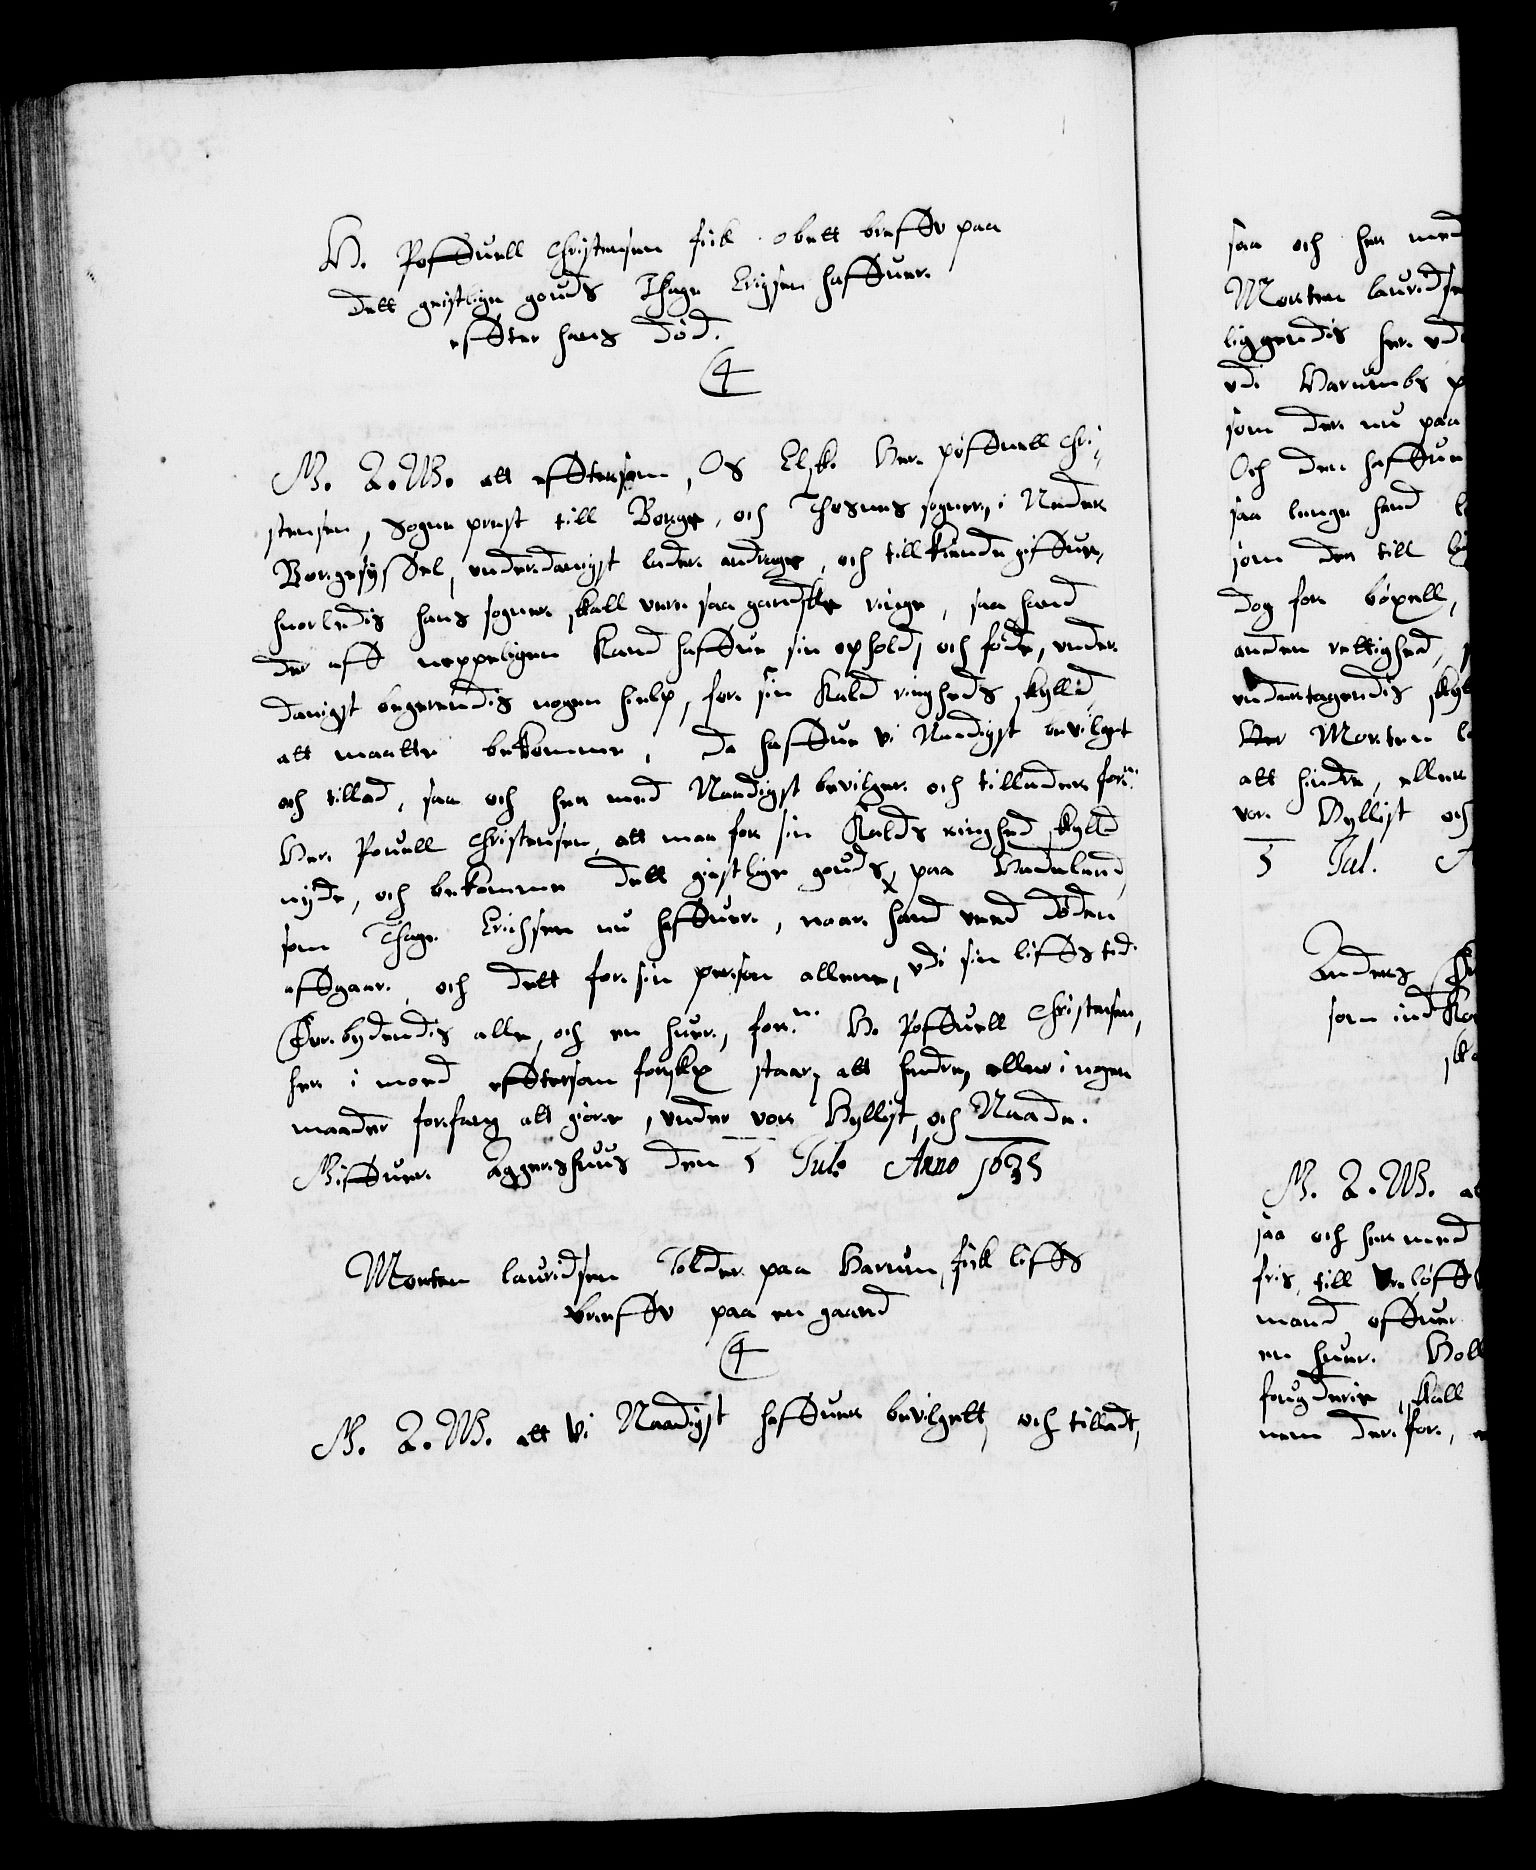 H. Poffuell Christensen fick obett breff paa
dett geistlige gouds Thage Erigsen haffuer
effter hans død.
C4
G. A. W. att efftersom, Os Elsk. Her. poffuell Chri¬
stensen, Sogne prest till Borge, och Thosnes sogner, i Neder
Borgesyssel, underdanigst lader andrage, och tillkiende giffue,
huorledis hans sogner skall vere saa gandske ringe, saa hand
der aff neppeligen kand haffue sin ophold, och føde, under
danigst begerendis nogen hielp, for sin Kald ringheds skylld
att maatte bekomme, da haffue vi Naadigst bevilget
och tillad, saa och her med Naadigst bevilger och tillader forne:
Her. Pouell Christensen, att maa for sin Kalds ringhed skylld
nyde, och bekomme dett gistlige gouds, paa
som Thage Erichsen nu haffuer, naar hand ved døden
affgaar, och dett for sin person allene, udi sin liffs tid
Forbydendis alle, och en huer, forn. H. Poffuell Christensen,
her i moed efftersom forskp staar, att hindre, eller i nogen
maader forfang att giøre, under vor Hyllist, och Naade.
Giffuet Aggershuus den 5 Jul. Anno 1635
Morten lauridsen Tolder paa Harum, fick liffs
breff paa en gaard
C4
G. A. W. att Vi Naadigst haffuer bevilgett, och tilladt,
saa och her med
Morten lauridse
liggendis her ud
udi Harumbs p
som der nu paa
Och den haffue
saa lenge hand l
som der till
dog for bøxell,
anden rettighed,
undertagendis
Her Morten l
att hindre, eller
vor Hyllist och
5 Jul. A
Anders
som ind
G. A. W. a
saa och her med
fris, till
mand offuer
en huer. Holl
fougderie, skall
nem der for,